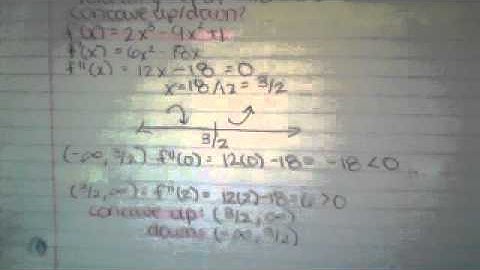 concave up/down?
f(x) = 2x³ - 9x² + 1
f'(x) = 6x² - 18x
f''(x) = 12x - 18 = 0
x = 18/12 = 3/2
3/2
(-∞, 3/2) f''(0) = 12(0) - 18 = -18 < 0
(3/2, ∞) = f''(2) = 12(2) - 18 = 6 > 0
concave up: (3/2, ∞)
down: (-∞, 3/2)